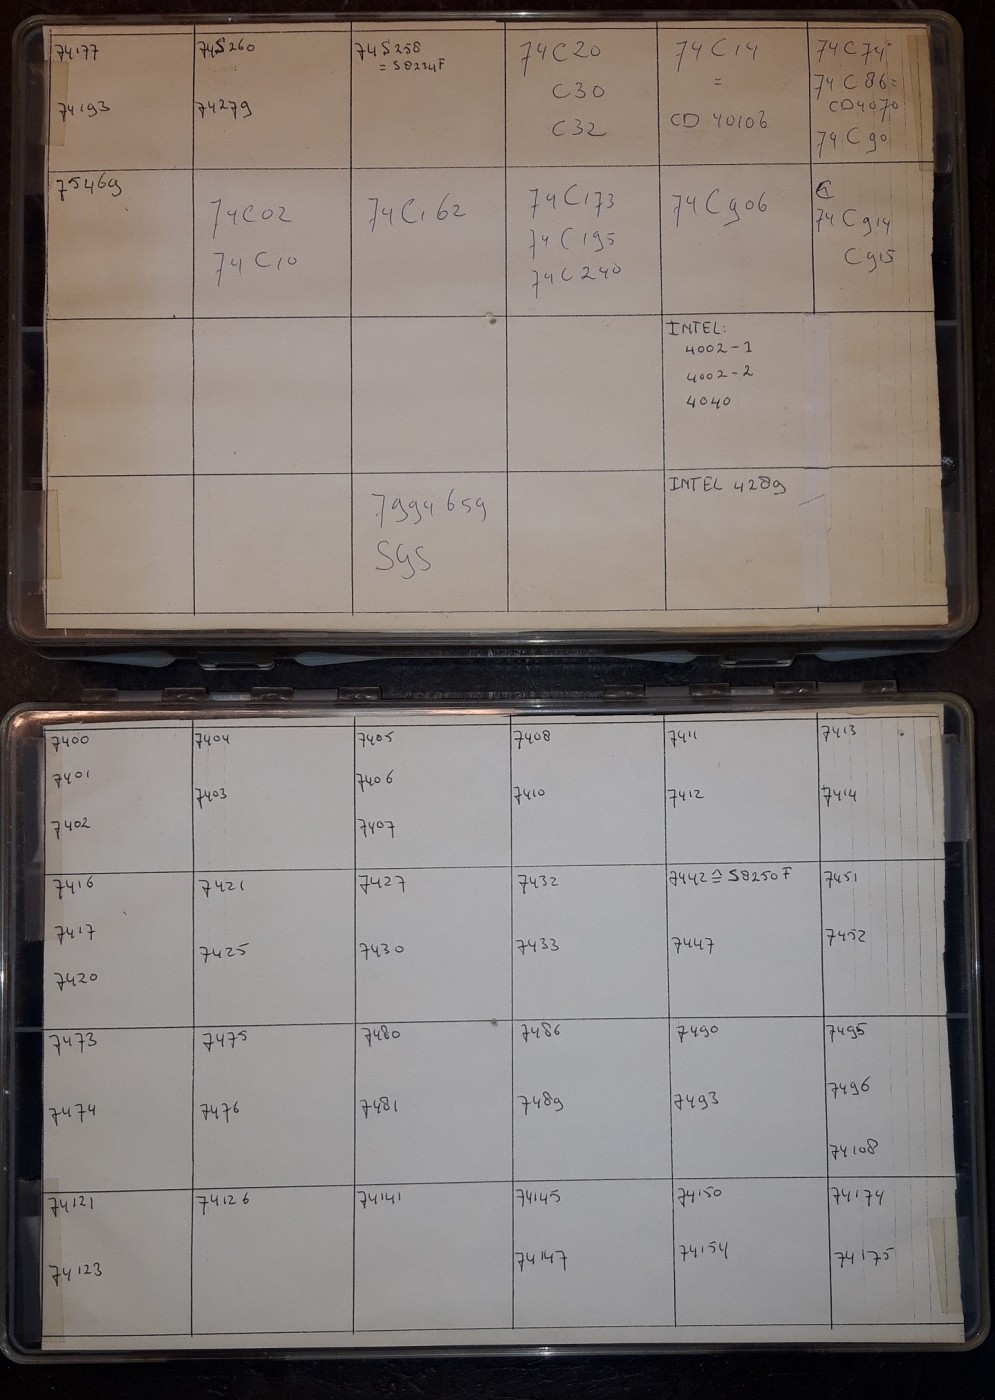 74177
74193
74S260
74279
74S258
= S8234F
74C20
C30
C32
74C14
=
CD 40106
74C74
74C86=
CD4070
74C90
75469
74C02
74C10
74C162
74C173
74C195
74C240
74C906
74C914
C915
INTEL:
4002-1
4002-2
4040
7994659
SGS
INTEL 4289
7400
7401
7402
7404
7403
7405
7406
7407
7408
7410
7411
7412
7413
7414
7416
7417
7420
7421
7425
7427
7430
7432
7433
7442 ≙ S8250F
7447
7451
7452
7473
7474
7475
7476
7480
7481
7486
7489
7490
7493
7495
7496
74108
74121
74123
74126
74141
74145
74147
74150
74154
74174
74175